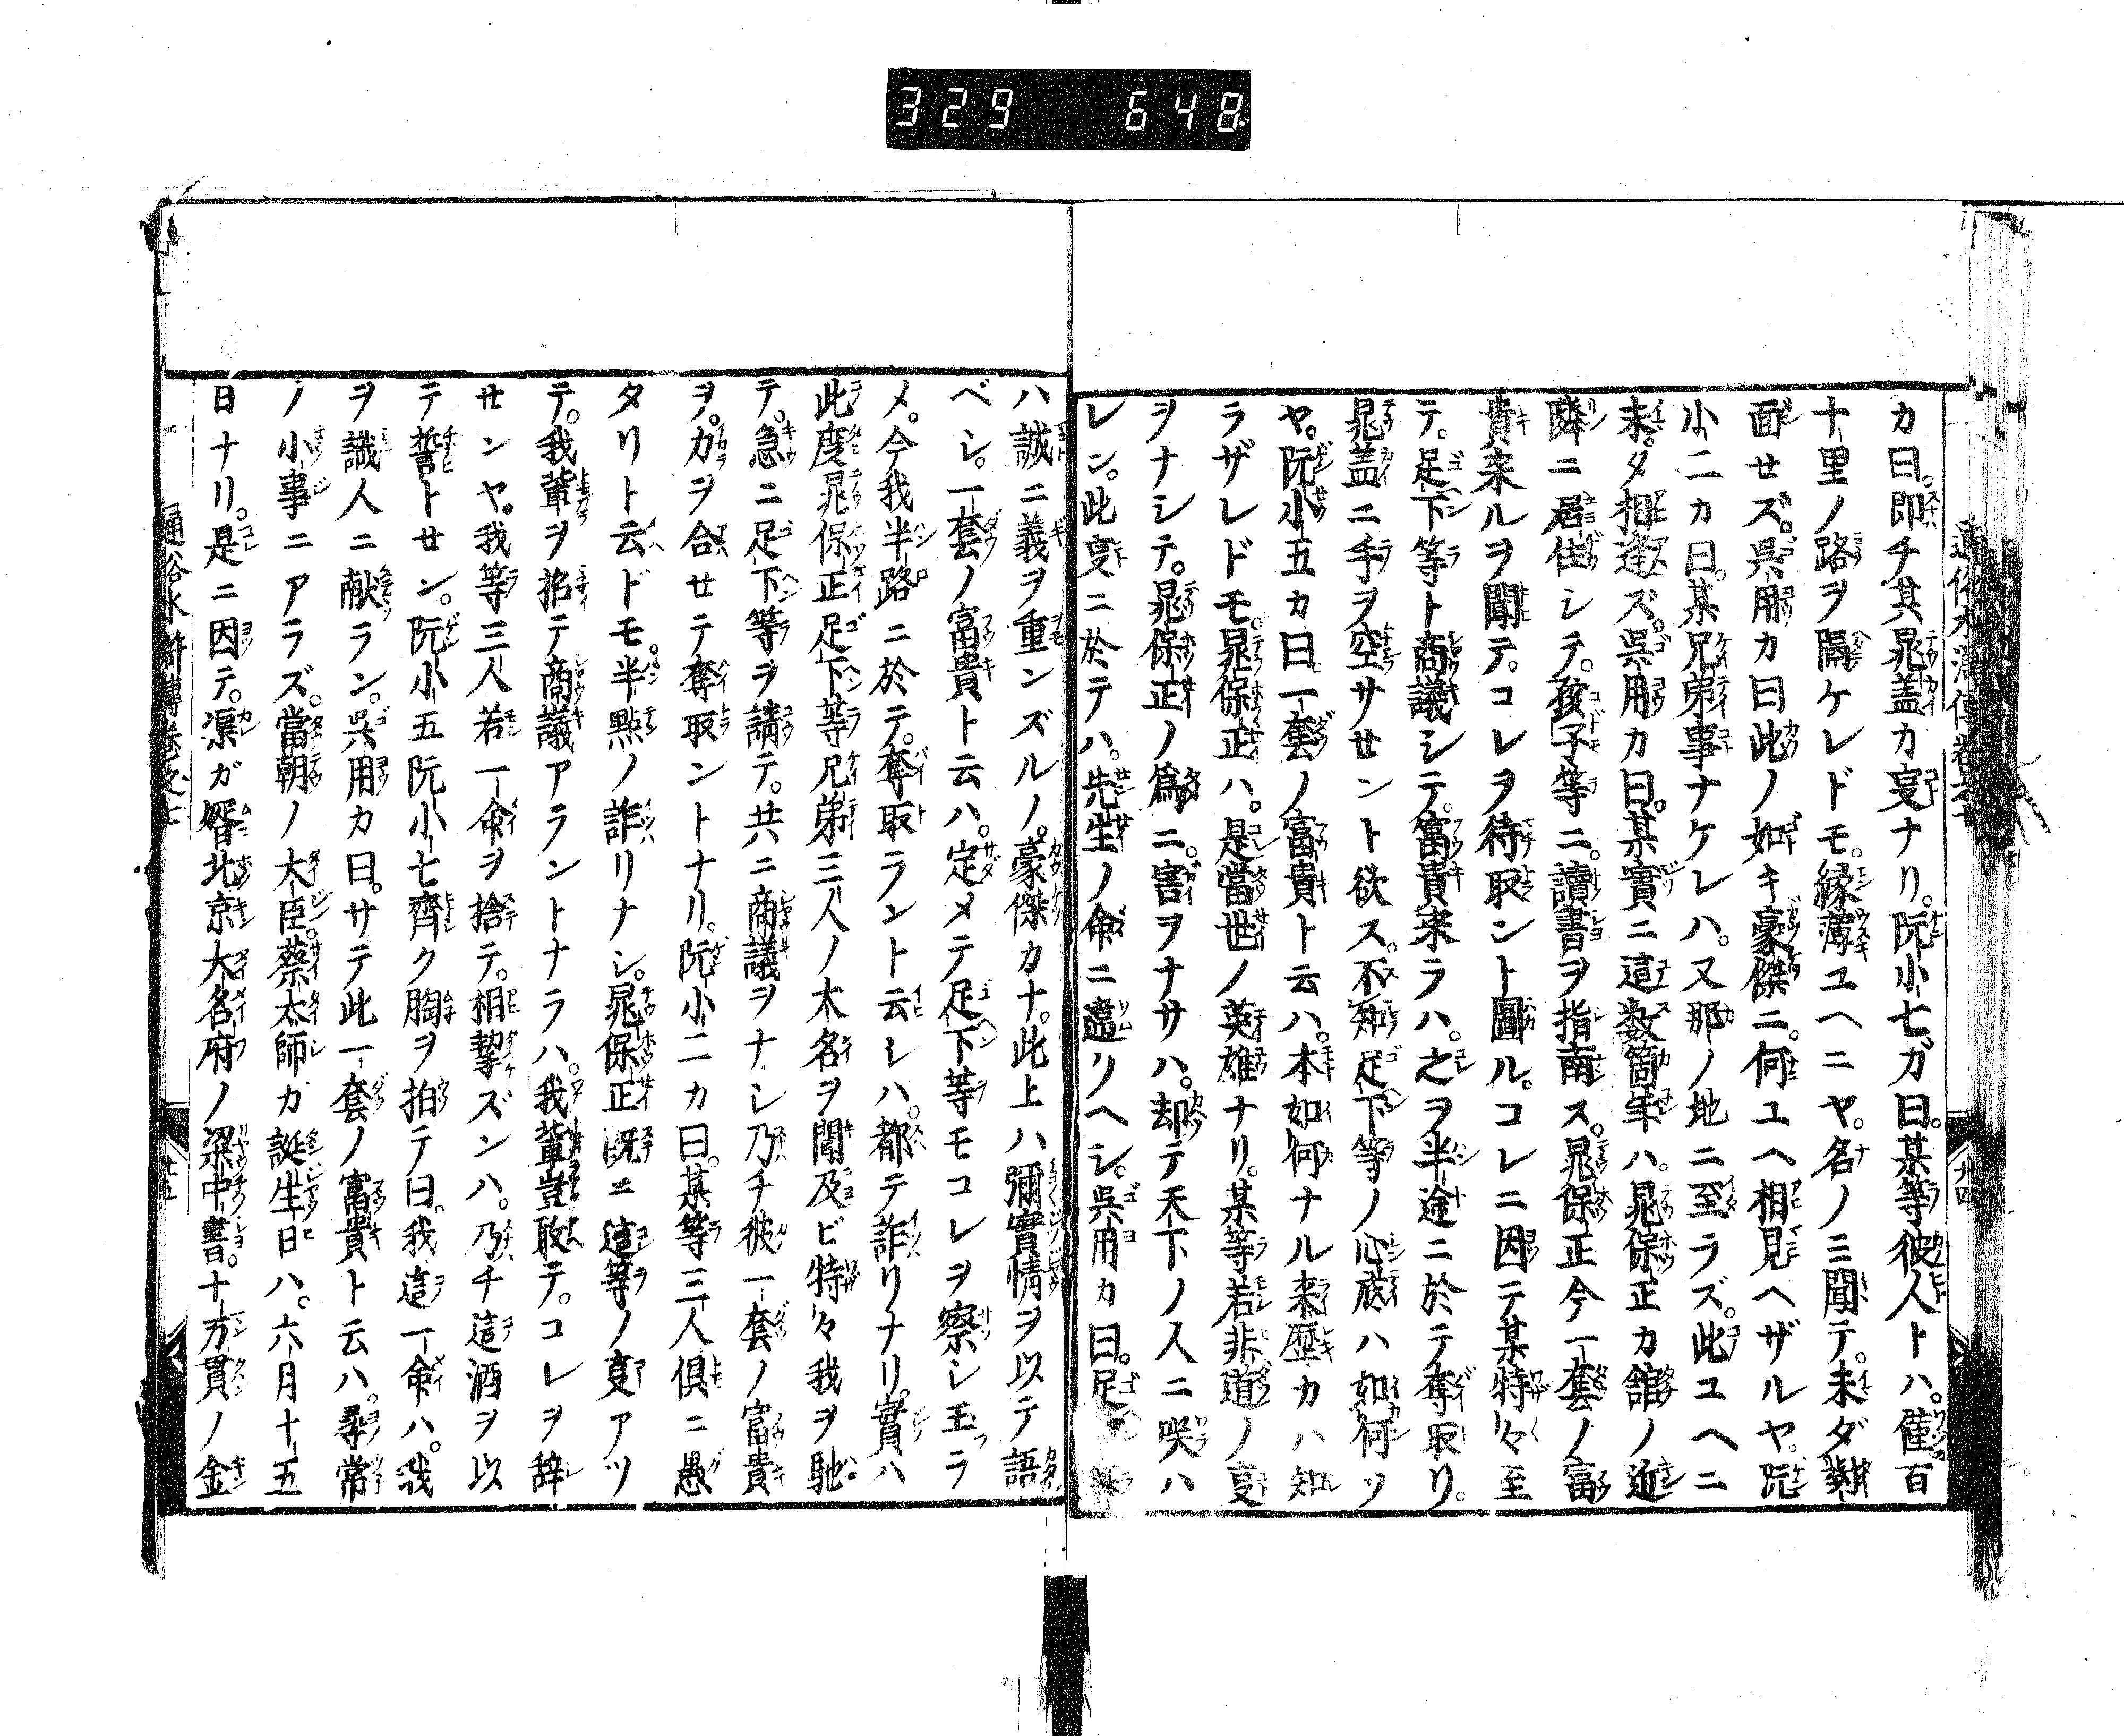 329 648
カ曰。即チ其晁盖カ叓ナリ。阮小七ガ曰。某等彼人トハ。僅百
十里ノ路ヲ隔ケレドモ。縁薄ユヘニヤ。名ノミ聞テ。未ダ對
面セズ。呉用カ曰此ノ如キ豪傑ニ。何ユヘ相見ヘザルヤ。阮
小二カ曰。某兄弟事ナケレハ。又那ノ地ニ至ラズ。此ユヘニ
未タ相逢ズ。呉用カ曰。某實ニ這数箇年ハ。晁保正カ舘ノ近
隣ニ居住シテ。孩子等ニ。讀書ヲ指南ス。晁保正今一套ノ富
貴来ルヲ聞テ。コレヲ待取ント圖ル。コレニ因テ某特々至
テ。足下等ト商議シテ。富貴来ラハ。之ヲ半途ニ於テ奪取リ。
晁盖ニ手ヲ空サセント欲ス。不知足下等ノ心底ハ如何ッ
ヤ。阮小五カ曰一套ノ富貴ト云ハ。本如何ナル来歴カハ知
ラザレドモ。晁保正ハ。是當世ノ英雄ナリ。某等若非道ノ叓
ヲナシテ。晁保正ノ為ニ。害ヲナサハ。却テ天下ノ人ニ咲ハ
レン。此叓ニ於テハ。先生ノ命ニ違リヘシ。呉用カ曰。足
ハ誠ニ義ヲ重ンズルノ。豪傑カナ。此上ハ彌實情ヲ以テ語
ベシ。一套ノ富貴ト云ハ。定メテ足下等モコレヲ察シ玉ラ
メ。今我半路ニ於テ。奪取ラント云シハ。都テ詐リナリ。實ハ
此度晁保正足下等兄弟三人ノ大名ヲ聞及ビ特々我ヲ馳
テ。急ニ足下等ヲ請テ。共ニ商議ヲナシ乃チ彼一套ノ富貴
ヲ。力ヲ合セテ奪取ントナリ。阮小二カ曰。某等三人俱ニ愚
タリト云ドモ。半點ノ詐リナシ。晁保正既ニ這等ノ叓アツ
テ。我輩ヲ招テ商議アラントナラハ。我輩豈敢テ。コレヲ辞
センヤ。我等三人若一命ヲ捨テ。相挈ズンハ。乃チ這酒ヲ以
テ誓トセン。阮小五阮小七齊ク胸ヲ拍テ曰。我這一命ハ。我
ヲ識人ニ献ラン。呉用カ曰。サテ此一套ノ富貴ト云ハ。尋常
ノ小事ニアラズ。當朝ノ大臣。蔡太師カ誕生日ハ。六月十五
日ナリ。是ニ因テ。渠ガ婿北京大名府ノ梁中書。十万貫ノ金
通俗水滸傳卷之七
廿五
廿四